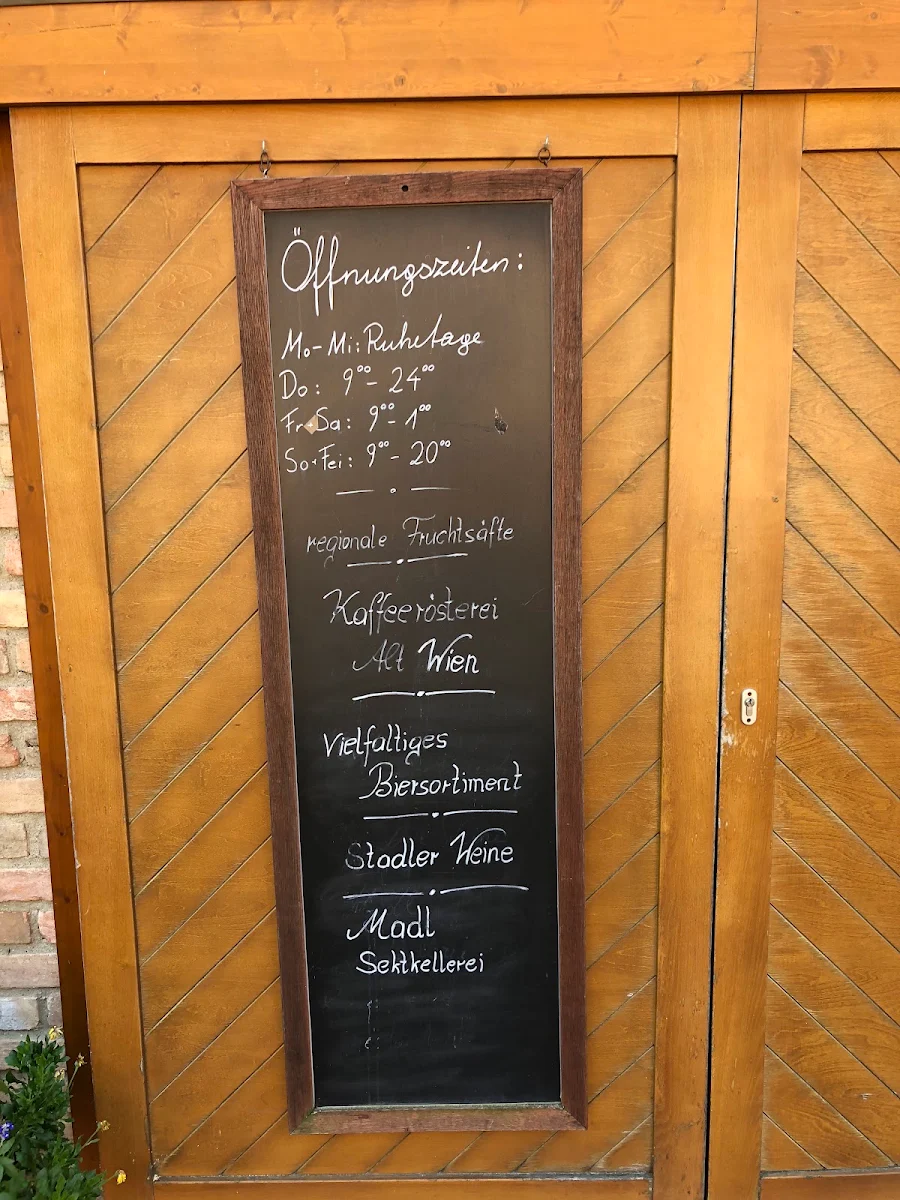 Öffnungszeiten:
Mo-Mi: Ruhetage
Do: 9⁰⁰- 24⁰⁰
Fr+Sa: 9⁰⁰- 1⁰⁰
So+Fei: 9⁰⁰- 20⁰⁰
regionale Fruchtsäfte
Kaffeerösterei
Alt Wien
Vielfältiges
Biersortiment
Stadler Weine
Madl
Sektkellerei